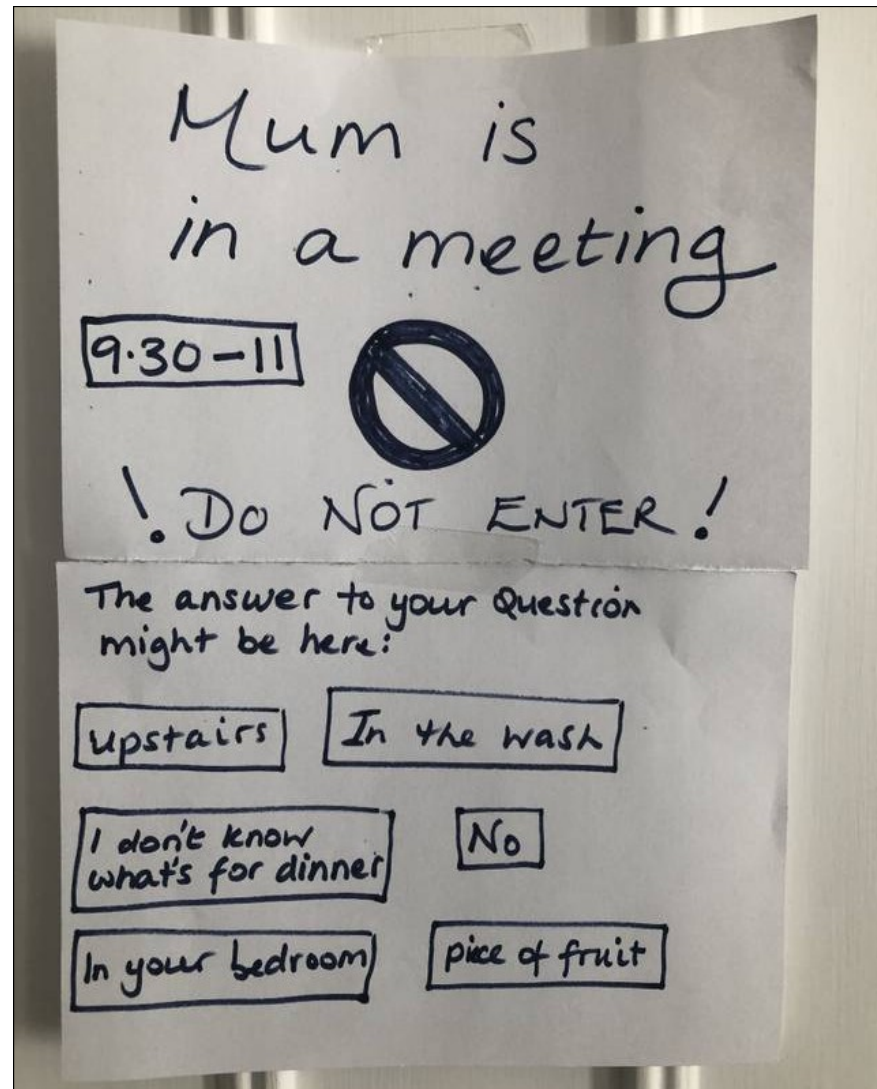 Mum is
in a meeting
9.30-11
! DO NOT ENTER!
The answer to your Question
might be here:
upstairs In the wash
I don't know
what's for dinner
No
In your bedroom piece of fruit